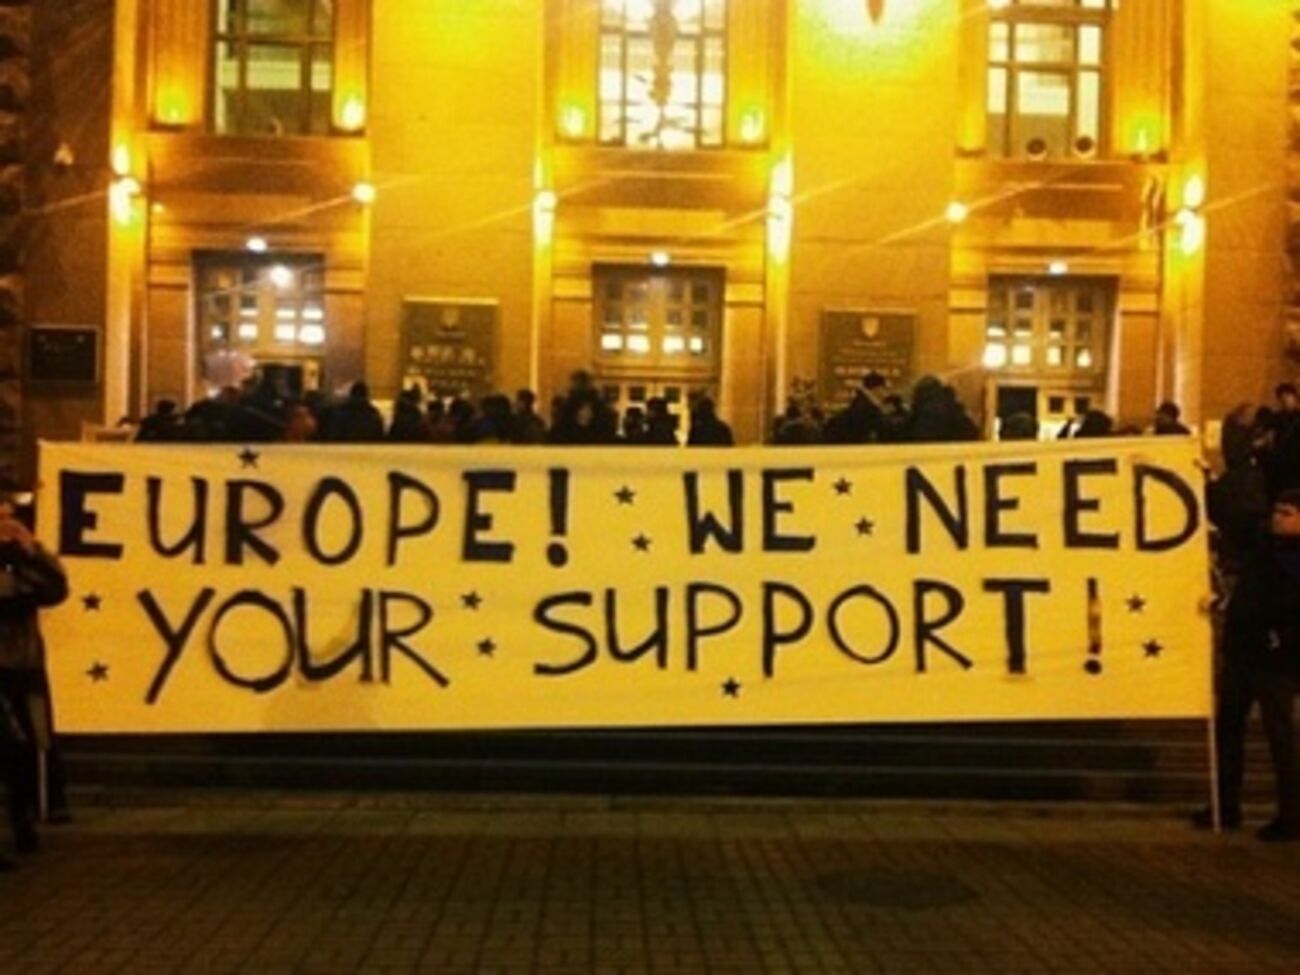 EUROPE! WE NEED
YOUR SUPPORT!